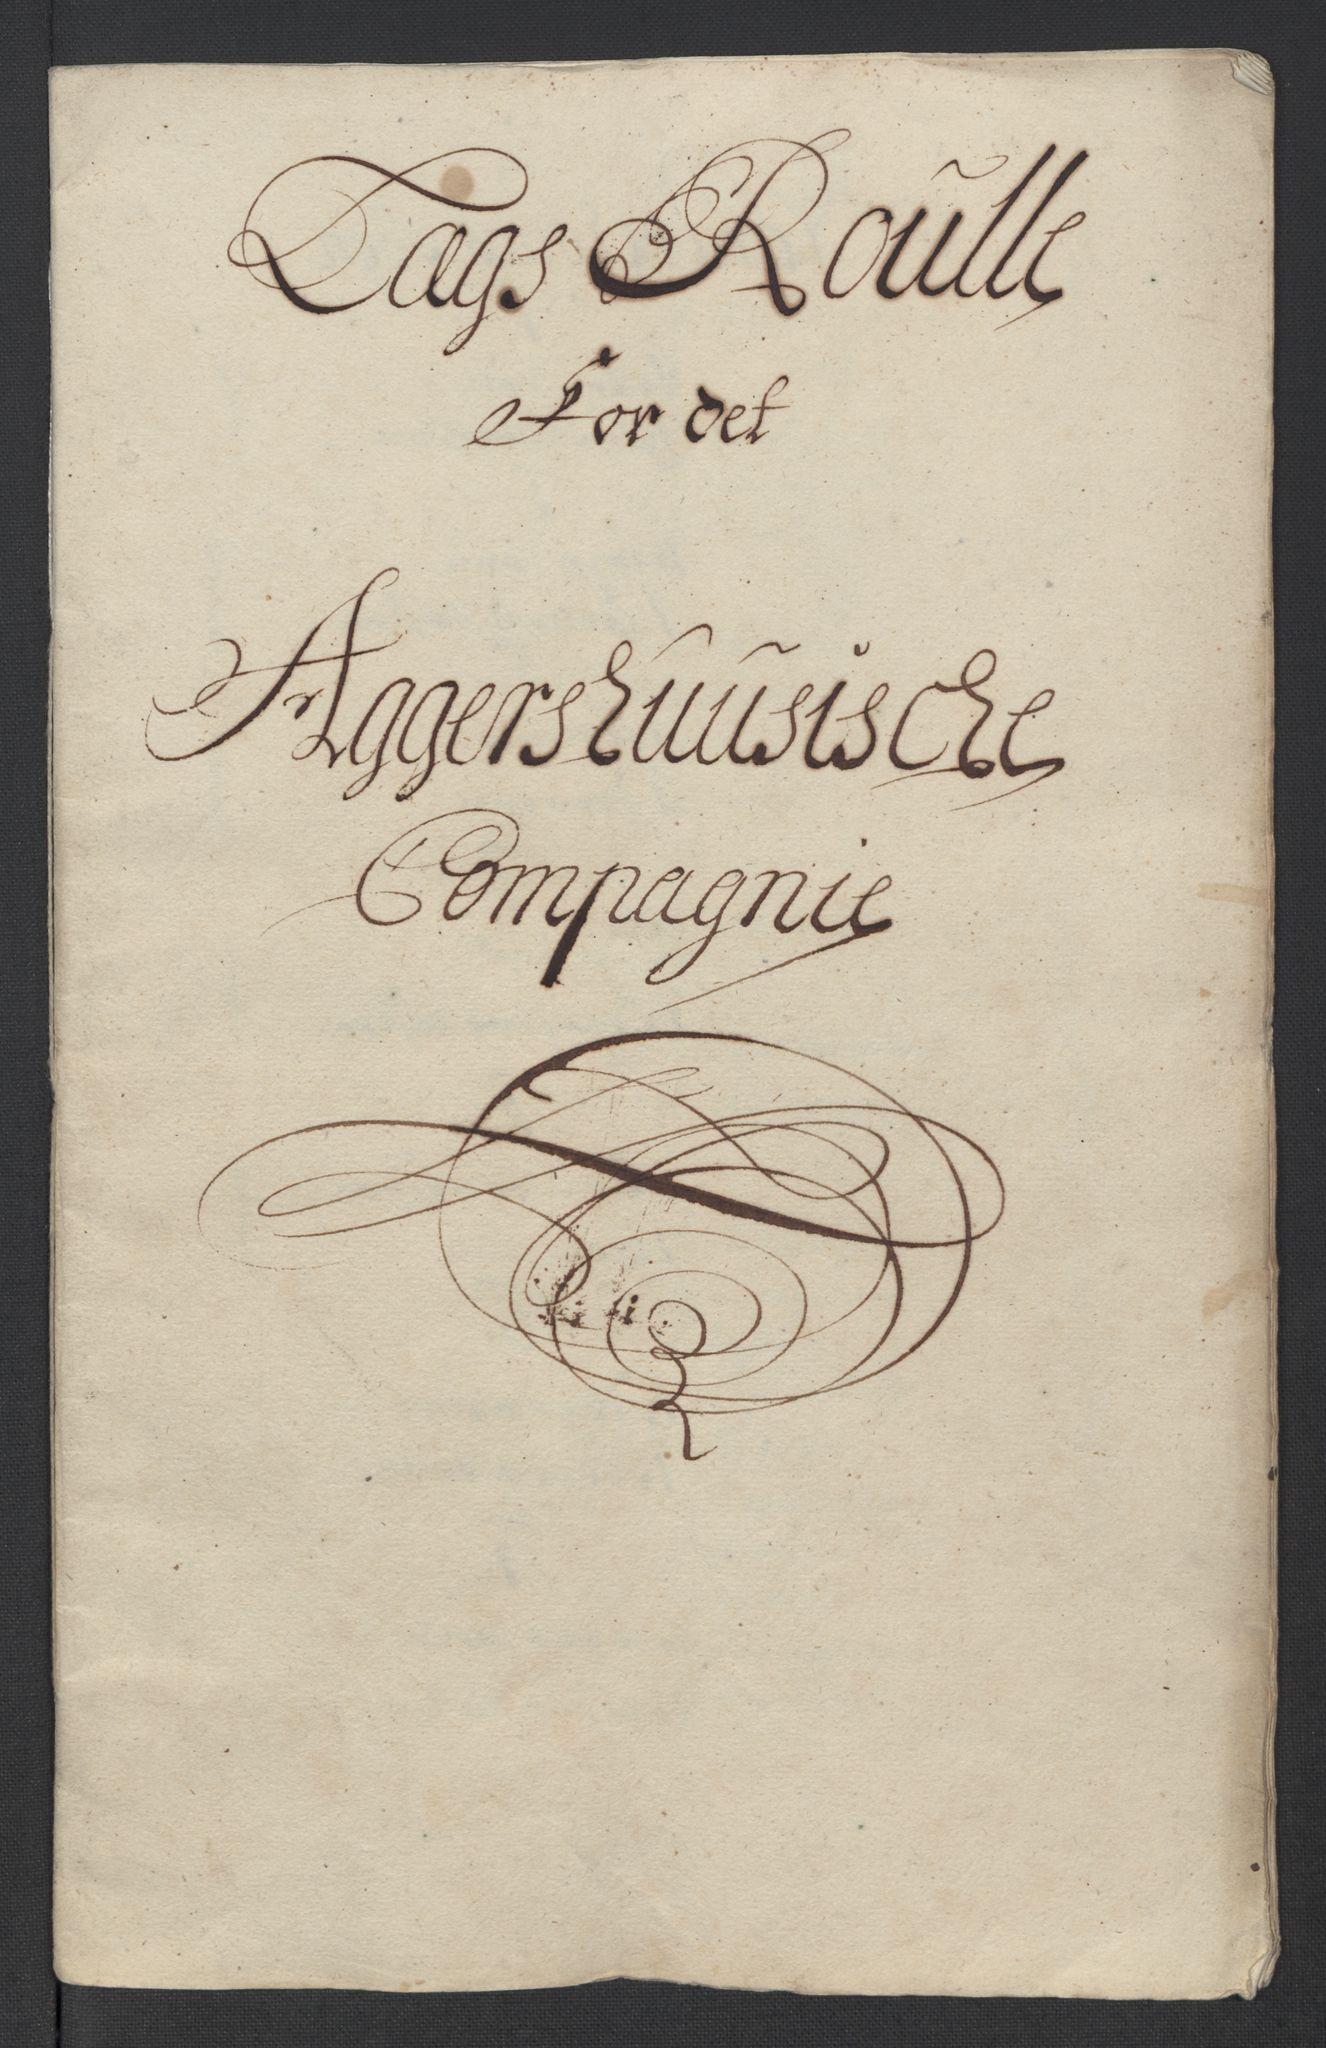 Lægs Roulle
For det
Aggershuusische
Compagnie